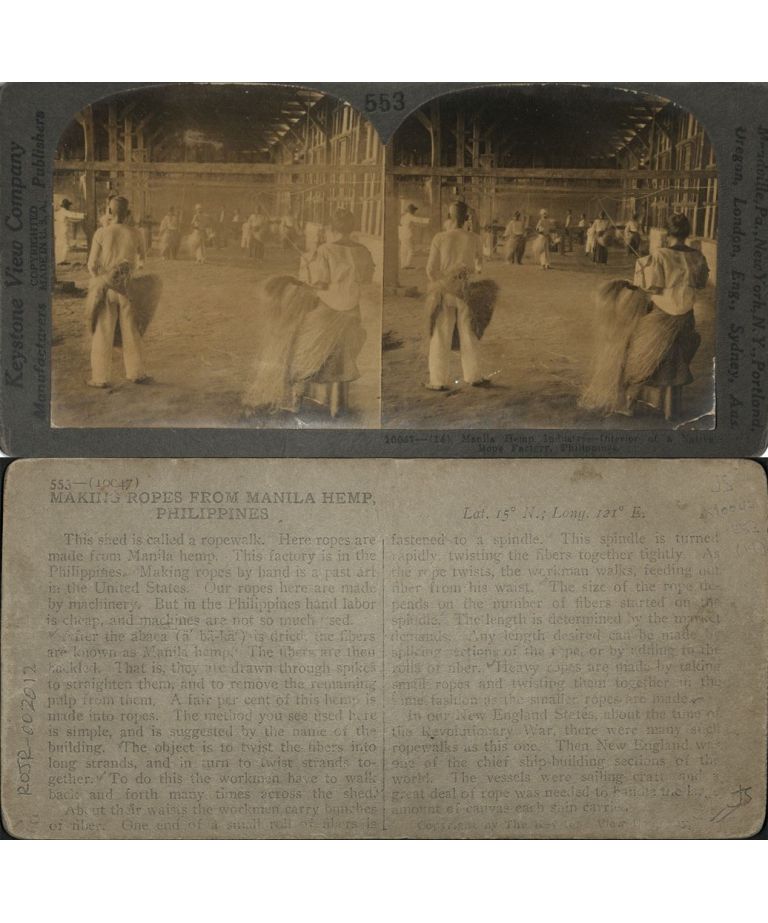 553
Keystone View Company
Manufacturers COPYRIGHTED MADE IN U.S.A. Publishers
Meadville, Pa., New York, N. Y., Portland,
Oregon, London, Eng., Sydney, Aus.
10047—(14) Manila Hemp Industry—Interior of a Native
Rope Factory, Philippines.
553—(10047)
MAKING ROPES FROM MANILA HEMP,
PHILIPPINES
Lat. 15° N.; Long. 121° E.
This shed is called a ropewalk. Here ropes are
made from Manila hemp. This factory is in the
Philippines. Making ropes by hand is a past art
in the United States. Our ropes here are made
by machinery. But in the Philippines hand labor
is cheap, and machines are not so much used.
After the abaca (ä' bä-kä') is dried, the fibers
are known as Manila hemp. The fibers are then
hackled. That is, they are drawn through spikes
to straighten them, and to remove the remaining
pulp from them. A fair per cent of this hemp is
made into ropes. The method you see used here
is simple, and is suggested by the name of the
building. The object is to twist the fibers into
long strands, and in turn to twist strands to-
gether. To do this the workmen have to walk
back and forth many times across the shed.
About their waists the workmen carry bunches
of fiber. One end of a small roll of fibers is
fastened to a spindle. This spindle is turned
rapidly, twisting the fibers together tightly. As
the rope twists, the workman walks, feeding out
fiber from his waist. The size of the rope de-
pends on the number of fibers started on the
spindle. The length is determined by the market
demands. Any length desired can be made by
splicing sections of the rope, or by adding to the
rolls of fiber. Heavy ropes are made by taking
small ropes and twisting them together in the
same fashion as the smaller ropes are made.
In our New England States, about the time of
the Revolutionary War, there were many such
ropewalks as this one. Then New England was
one of the chief ship-building sections of the
world. The vessels were sailing craft and a
great deal of rope was needed to handle the large
amount of canvas each ship carried.
Copyright by The Keystone View Company
ROJR-002012
JS
JS